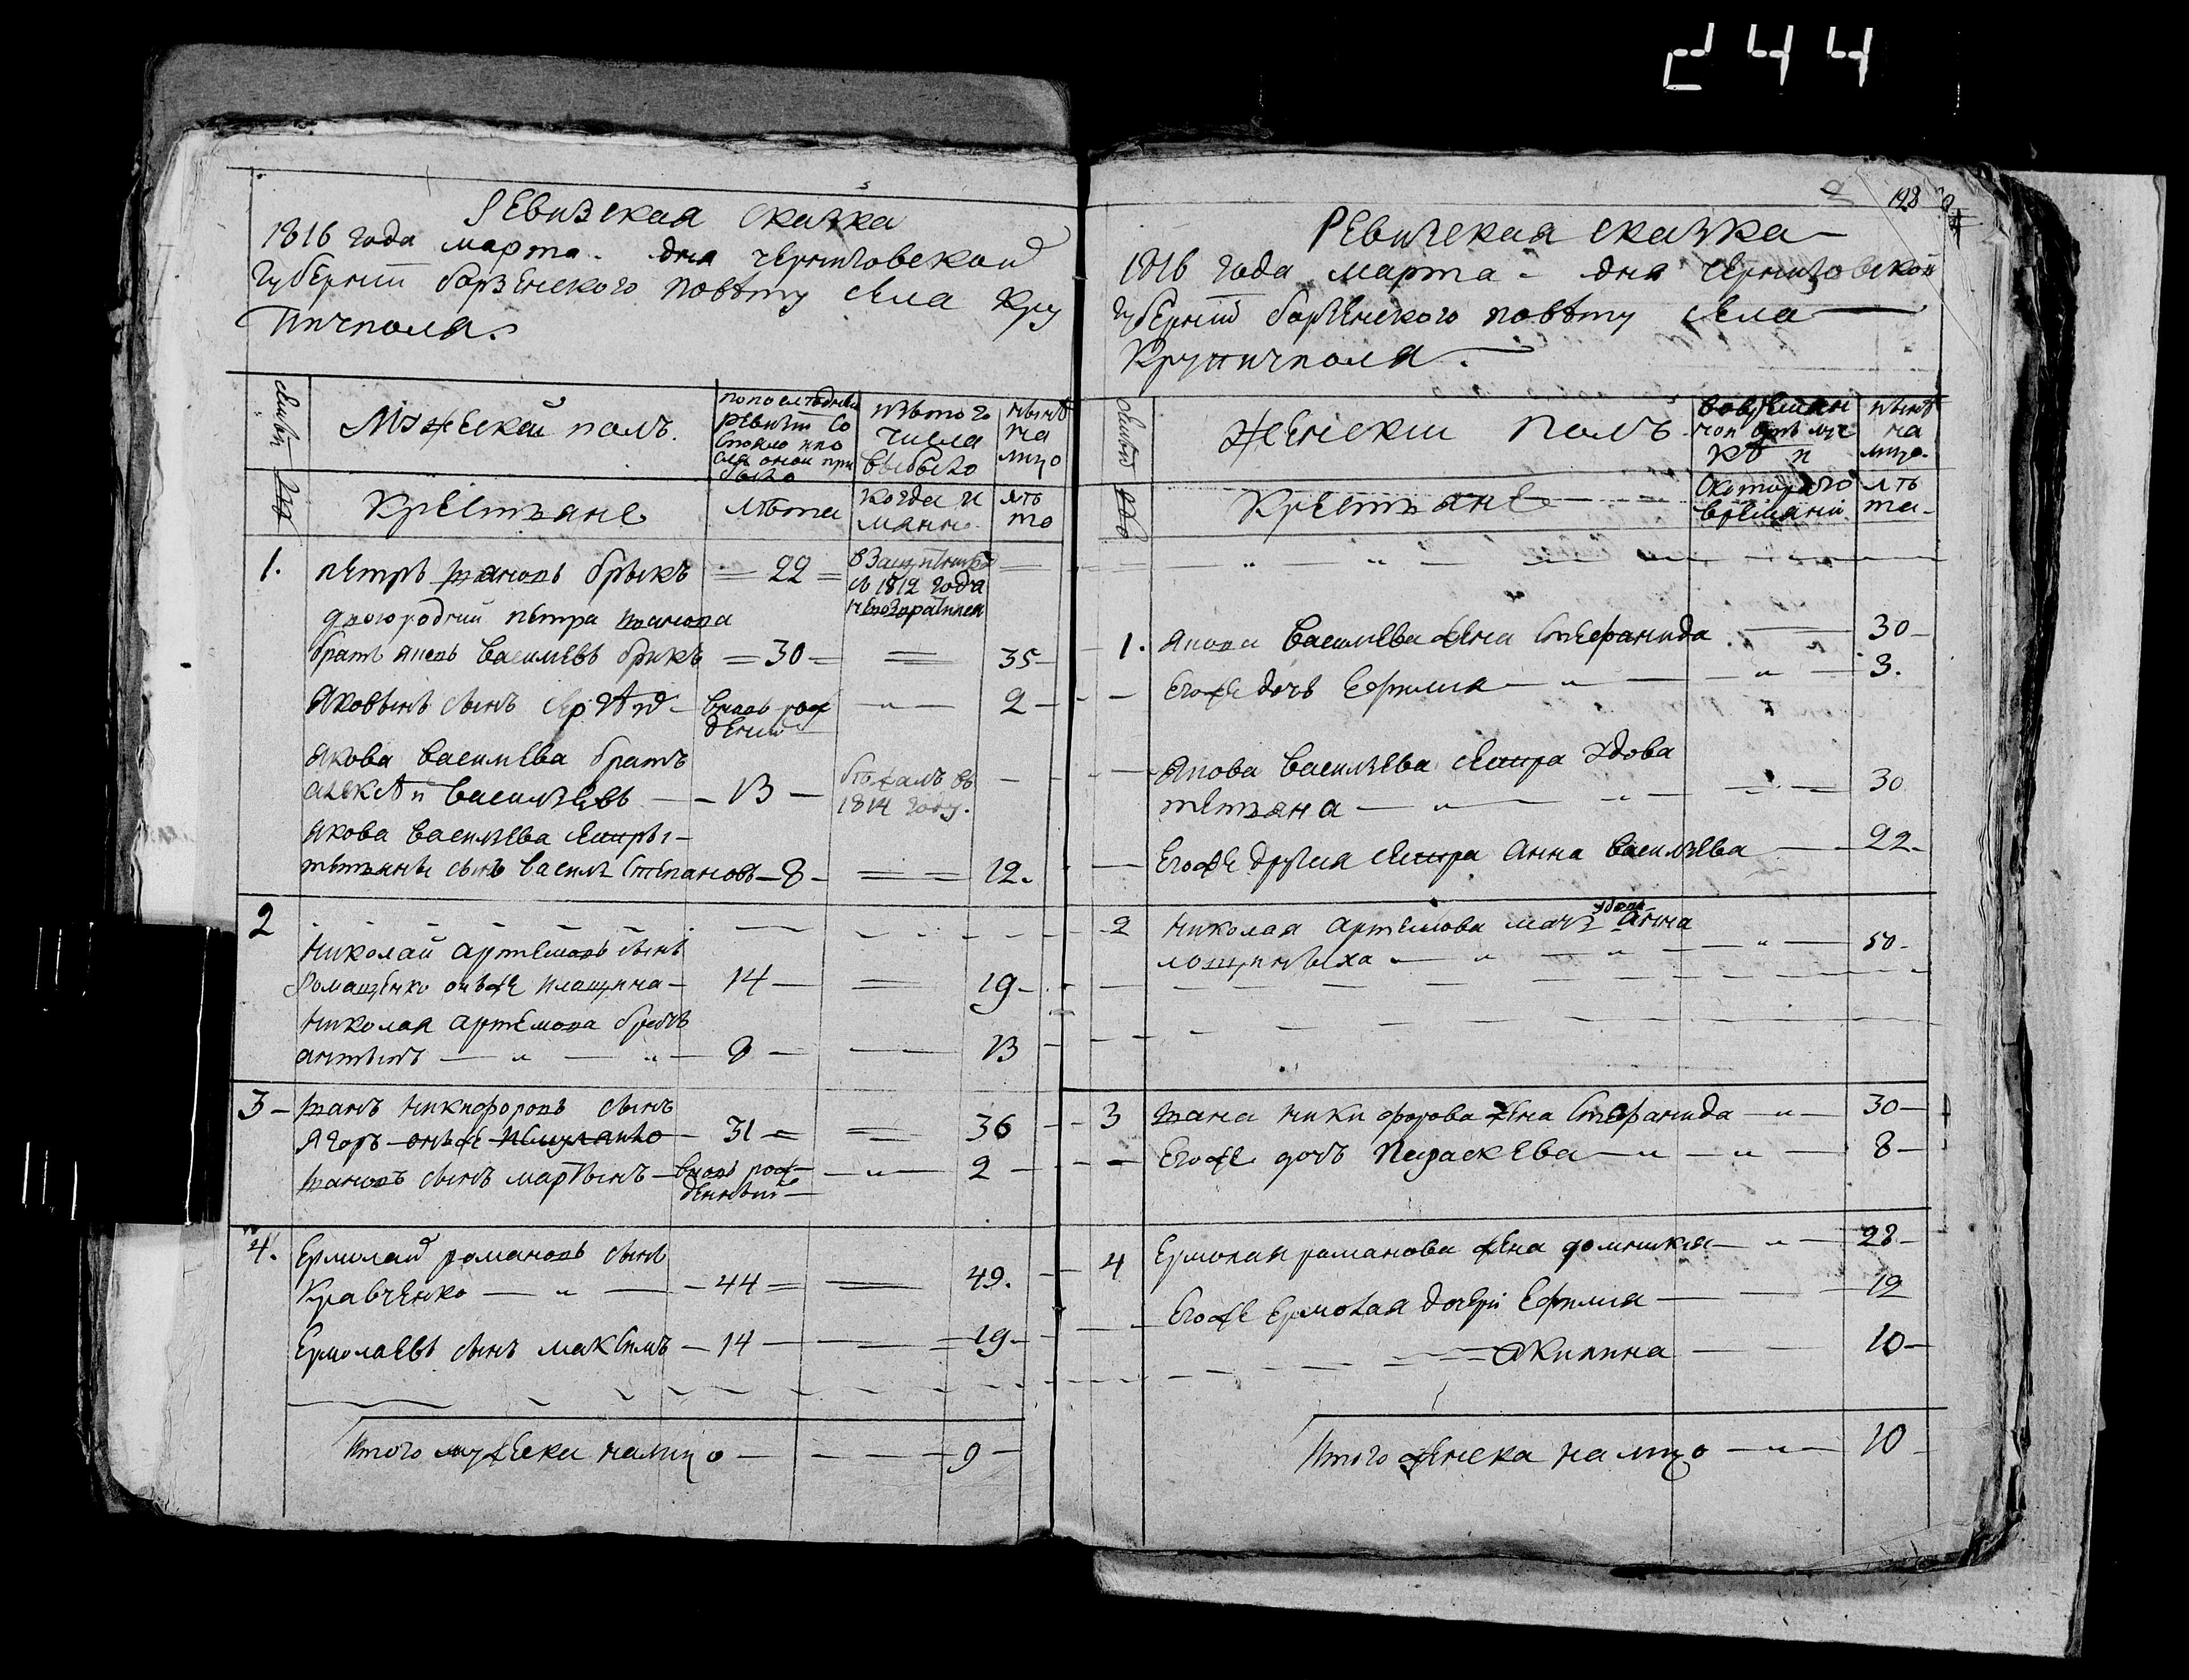 244
Ревизская сказка
1816 года марта. дня черниговской
Губернии борзенского повѣту села Кру
пичполя.
Мужеский полъ.
по последней
ревизии со
стояло и по
сле оной при
было
изъ того
числа
выбыло
нынѣ
на
лицо
Крестьяне
лѣта
когда и
лѣ
та
1. петръ ивановъ брыкъ 22
1812 года
двоюродний петра иванова
братъ яковъ Василиевъ брикъ 30 35
Яковынъ сынъ 2
вновь рож
Якова Василиева братъ
алексѣй Василиевъ 13
бѣжалъ въ
1814 году.
Якова Василиева сестры
тетьяны сынъ Василь степановъ 8 12.
2
Николай артемовъ сынъ
Ромащенко онъже 14 19
Николая артемова братъ
8 13
3 иванъ никифоровъ сынъ
Ягоръ онъже 31 36
ивановъ сынъ мартынъ вновь рож
денный 2
4. Ермолай романовъ сынъ
Кравченко 44 49.
Ермолаевъ сынъ максимъ 14 19
Итого мужеска налицо 9
128
Ревизская сказка
1816 года марта дня черниговской
Губернии борзенского повѣту села
Крупичполя.
Женский полъ
нынѣ
на
лицо.
Крестьяне
с которого
времяни
лѣ
та
1. Якова Василиева жена Стефанида 30
Егоже дочь Ефимия 3.
Якова Василиева сестра вдова
тетьяна 30
Егоже другая сестра Анна Василиева 22
2 Николая артемова мать вдова анна
50
3 ивана никифорова жена Стефанида 30
Егоже дочь Параскева 8
4 Ермолая романова жена домникия 28
Егоже Ермолая дочери Ефимия 12
Акилина 10
Итого женска налицо 10